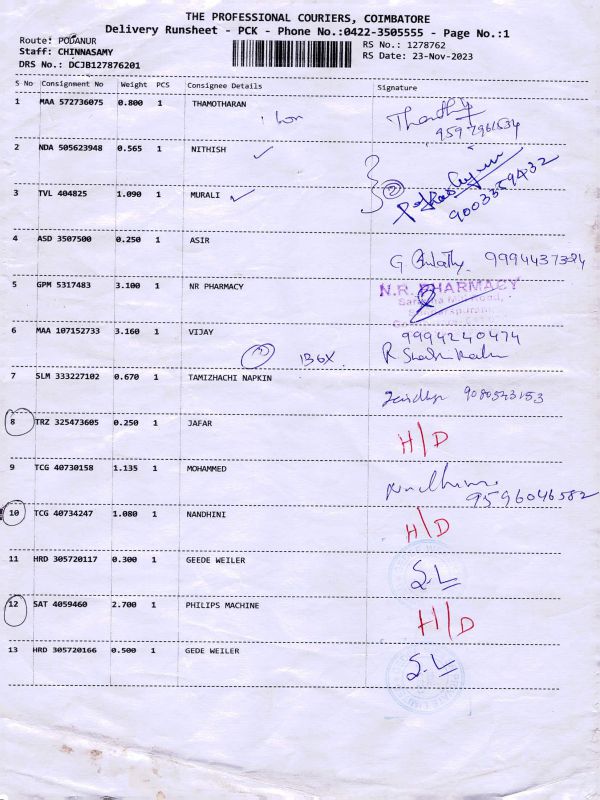 THE PROFESSIONAL COURIERS, COIMBATORE
Delivery Runsheet - PCK - Phone No.:0422-3505555 - Page No.:1
Route: PODANUR
RS No.: 1278762
Staff: CHINNASAMY
RS Date: 23-Nov-2023
DRS No.: DCJB127876201
S No Consignment No Weight PCS Consignee Details Signature
1 MAA 572736075 0.800 1 THAMOTHARAN
9597961534
2 NDA 505623948 0.565 1 NITHISH
2
9003359432
3 TVL 404825 1.090 1 MURALI
4 ASD 3507500 0.250 1 ASIR
G 9994437384
5 GPM 5317483 3.100 1 NR PHARMACY
N.R. PHARMACY
6 MAA 107152733 3.160 1 VIJAY
9994240474
1 BOX R
7 SLM 333227102 0.670 1 TAMIZHACHI NAPKIN
9080543153
8 TRZ 325473605 0.250 1 JAFAR
H/D
9 TCG 40730158 1.135 1 MOHAMMED
9596046582
10 TCG 40734247 1.080 1 NANDHINI
H/D
11 HRD 305720117 0.300 1 GEEDE WEILER
S.L
12 SAT 4059460 2.700 1 PHILIPS MACHINE
H/D
13 HRD 305720166 0.500 1 GEDE WEILER
S.L